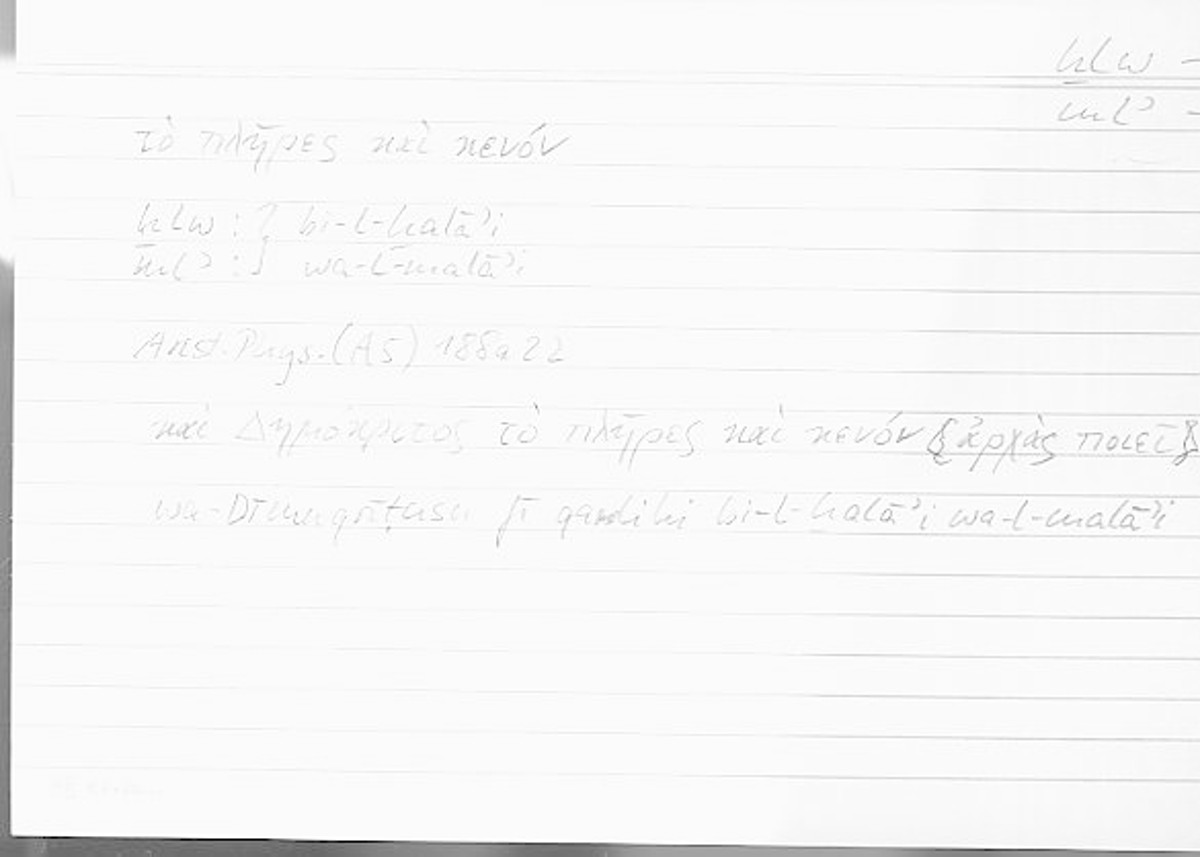 ḫlw –
mlʾ –
τὸ πλῆρες καὶ κενόν
ḫlw : } bi-l-ḫalāʾi
mlʾ : } wa-l-malāʾi
Arist. Phys. (A5) 188a22
καὶ Δημόκριτος τὸ πλῆρες καὶ κενόν [ἀρχὰς ποιεῖ]
wa-Dīmuqrīṭusu fī qawlihi bi-l-ḫalāʾi wa-l-malāʾi